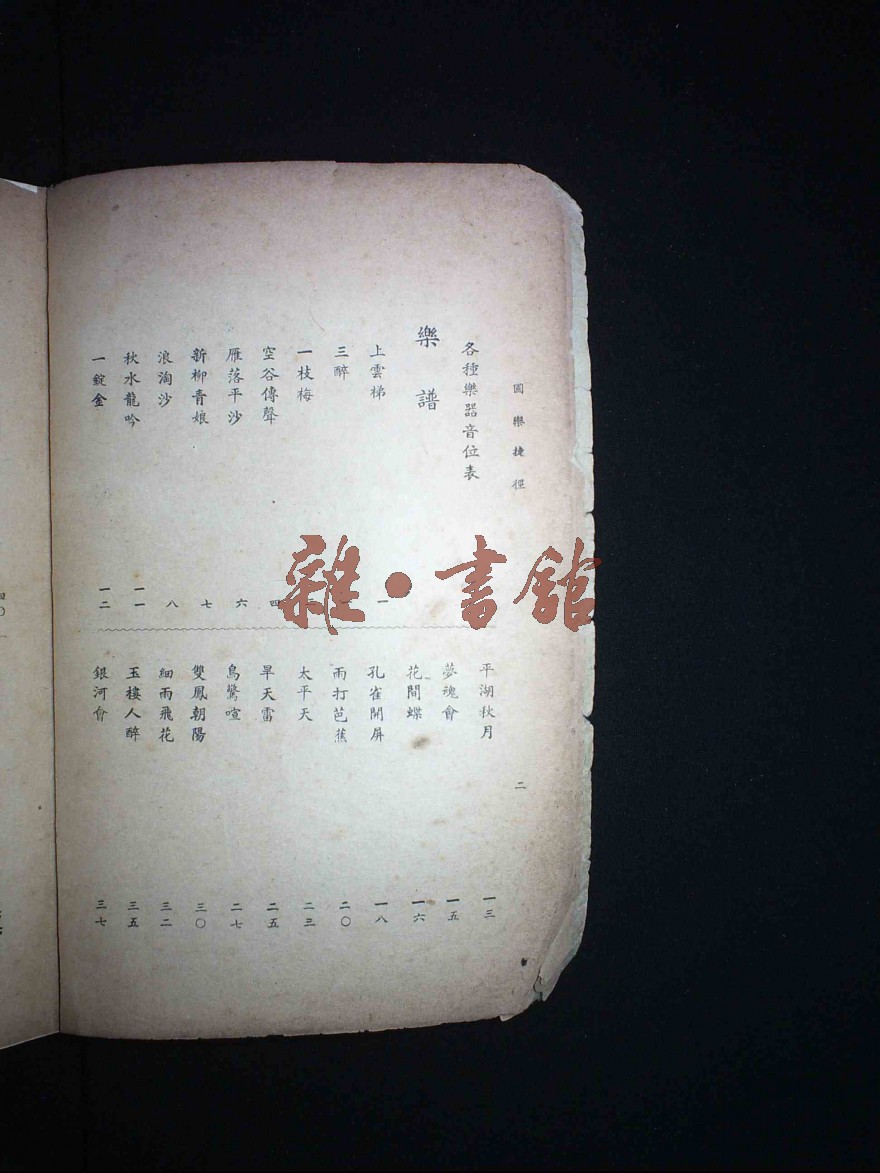 國樂捷徑
二
各種樂器音位表
樂譜
上雲梯 一
三醉
一枝梅
空谷傳聲 四
雁落平沙 六
新柳青娘 七
浪淘沙 八
秋水龍吟 一一
一錠金 一二
平湖秋月 一三
夢魂會 一五
花間蝶 一六
孔雀開屏 一八
雨打芭蕉 二〇
太平天 二三
旱天雷 二五
鳥驚喧 二七
雙鳳朝陽 三〇
細雨飛花 三二
玉樓人醉 三五
銀河會 三七
雜·書館